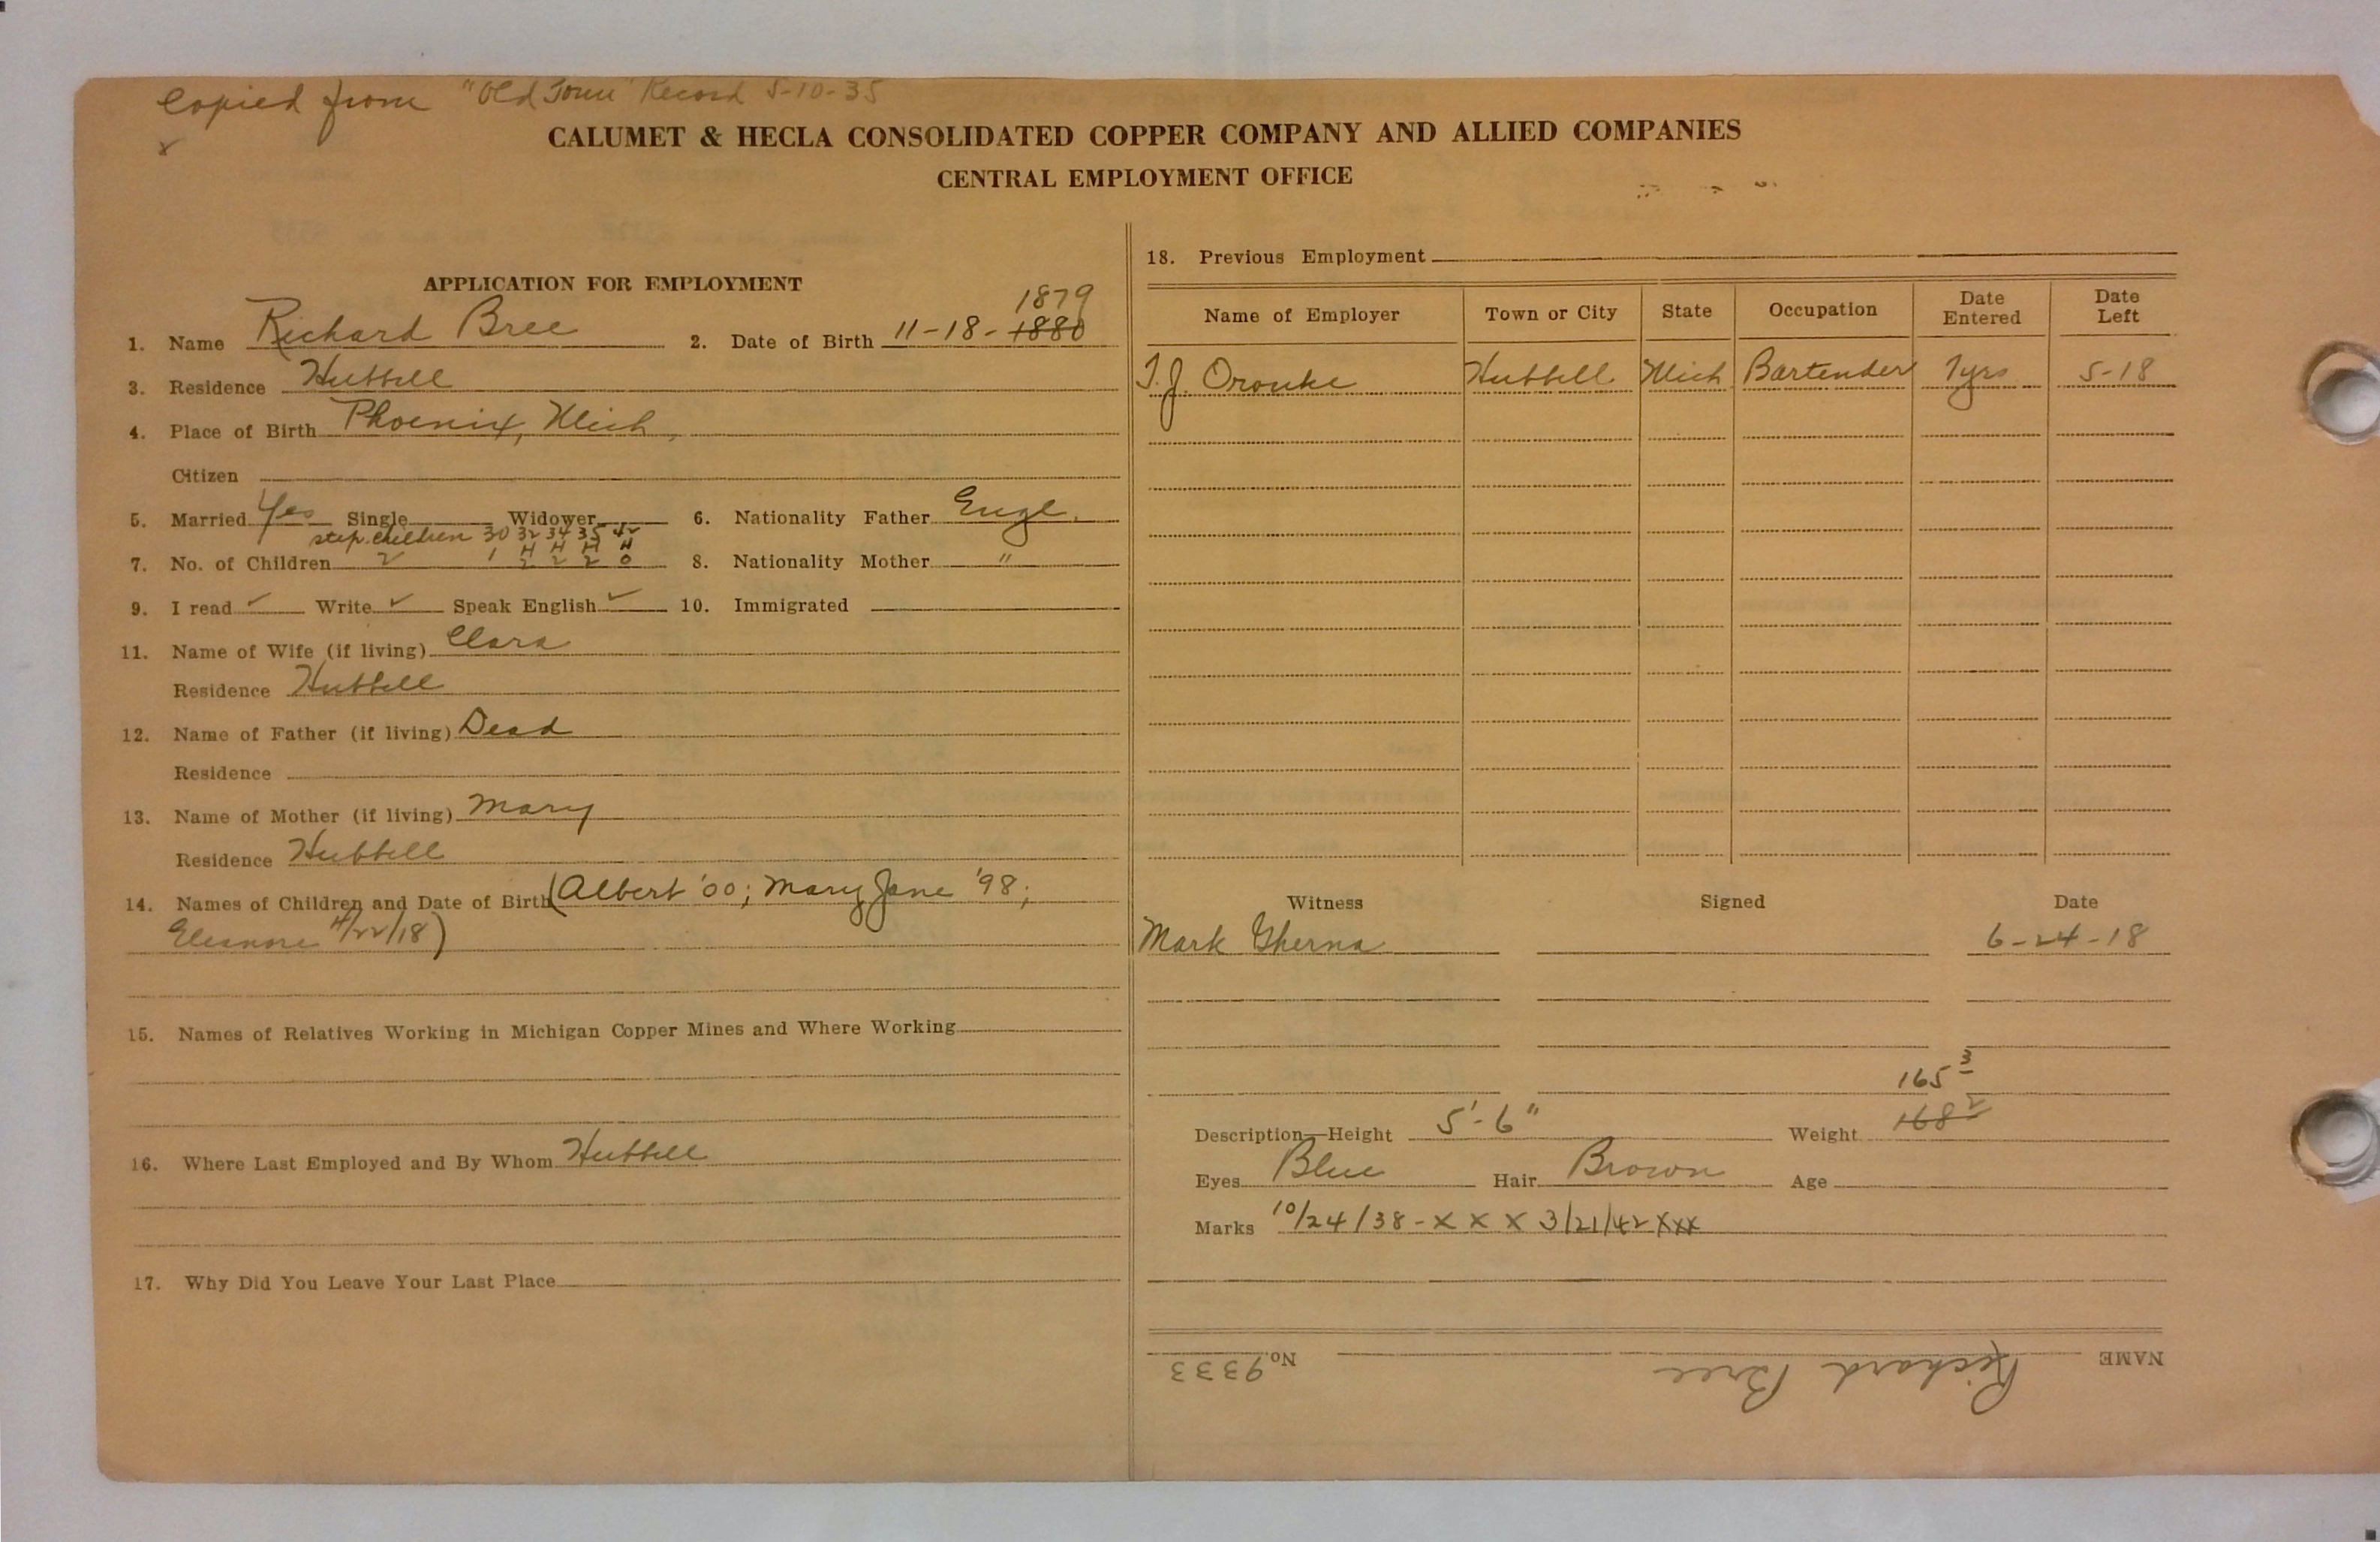 Copied from "Old Form" Record 5-10-35
x
CALUMET & HECLA CONSOLIDATED COPPER COMPANY AND ALLIED COMPANIES
CENTRAL EMPLOYMENT OFFICE
APPLICATION FOR EMPLOYMENT
1879
1. Name Richard Bree 2. Date of Birth 11-18-1880
3. Residence Hubbell
4. Place of Birth Phoenix, Mich,
Citizen
5. Married Yes Single Widower 6. Nationality Father Engl.
step children 30 32 34 35 42
H H H H
7. No. of Children 2 1 2 2 2 0 8. Nationality Mother "
9. I read ✓ Write ✓ Speak English ✓ 10. Immigrated
11. Name of Wife (if living) Clara
Residence Hubbell
12. Name of Father (if living) Dead
Residence
13. Name of Mother (if living) Mary
Residence Hubbell
14. Names of Children and Date of Birth (Albert '00; Mary Jane '98;
Eleanore 4/22/18)
15. Names of Relatives Working in Michigan Copper Mines and Where Working
16. Where Last Employed and By Whom Hubbell
17. Why Did You Leave Your Last Place
18. Previous Employment
Name of Employer Town or City State Occupation Date Entered Date Left
T.J. Orouke Hubbell Mich Bartender 7yrs 5-18
Witness Signed Date
Mark Gherna 6-24-18
165 3
Description—Height 5'-6" Weight 168 2
Eyes Blue Hair Brown Age
Marks 10/24/38-X X X 3/21/42 XXX
NAME Richard Bree No. 9333